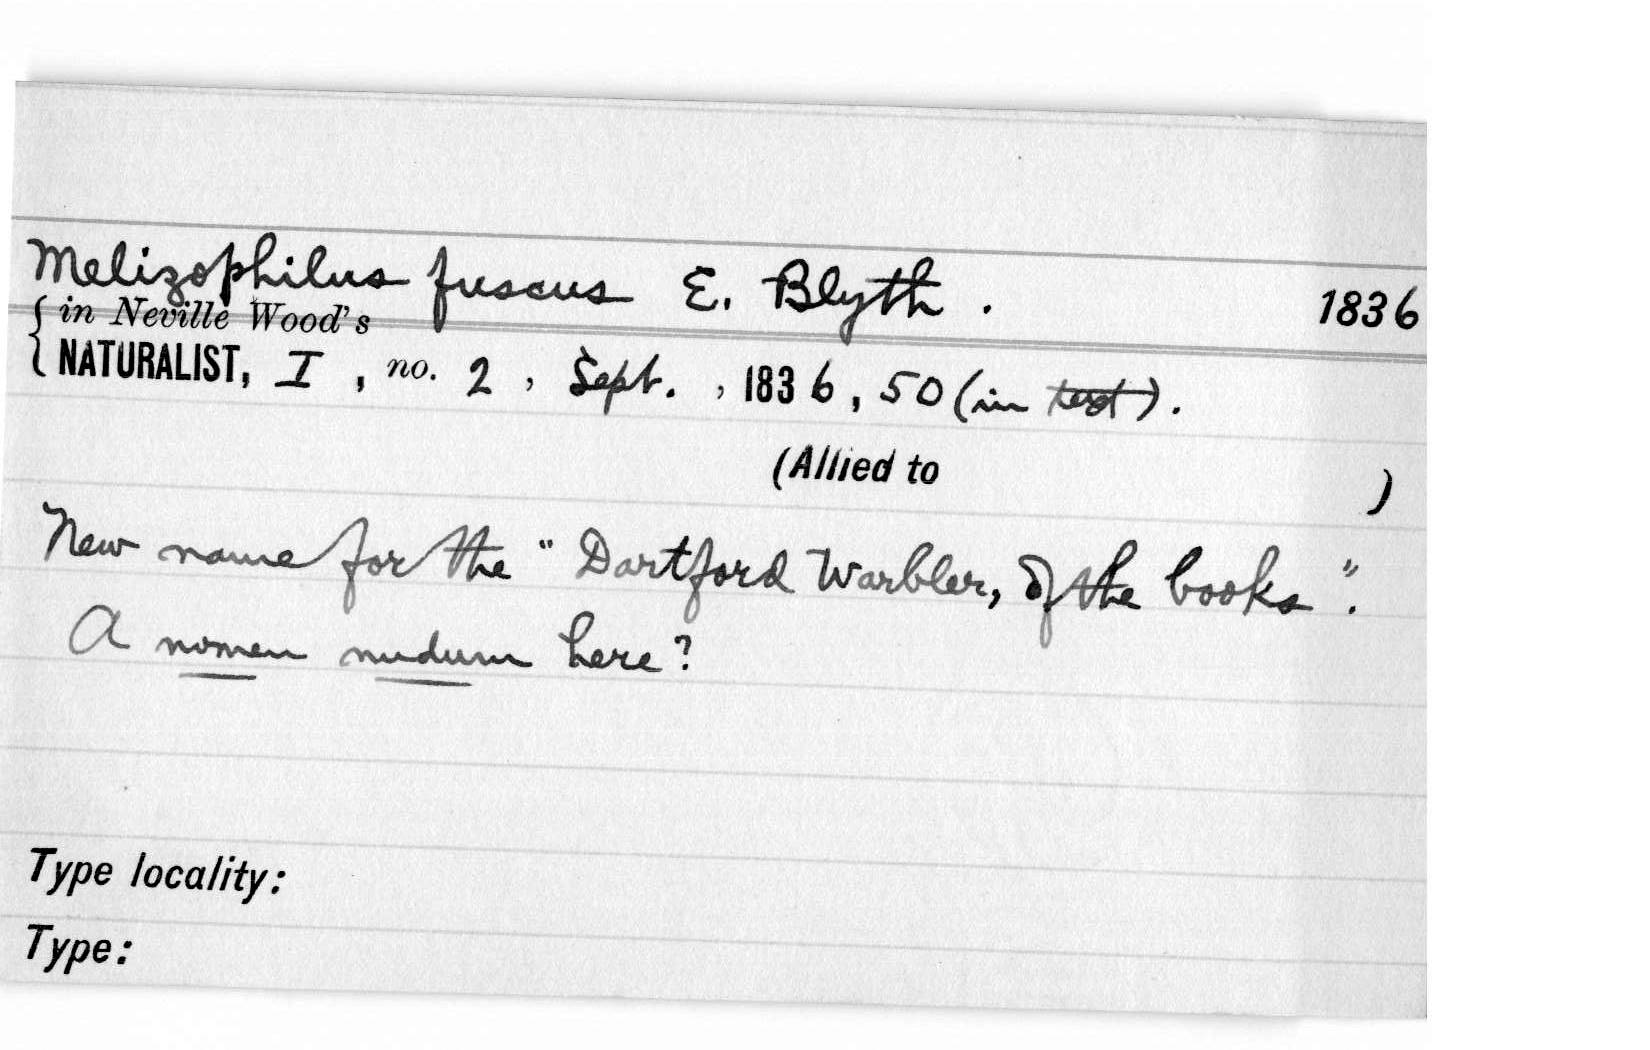 Melizophilus fuscus E. Blyth. 1836
in Neville Wood's
NATURALIST, I, no. 2, Sept., 1836, 50 (in text).
(Allied to )
New name for the "Dartford Warbler, of the books".
A nomen nudum here?
Type locality:
Type: